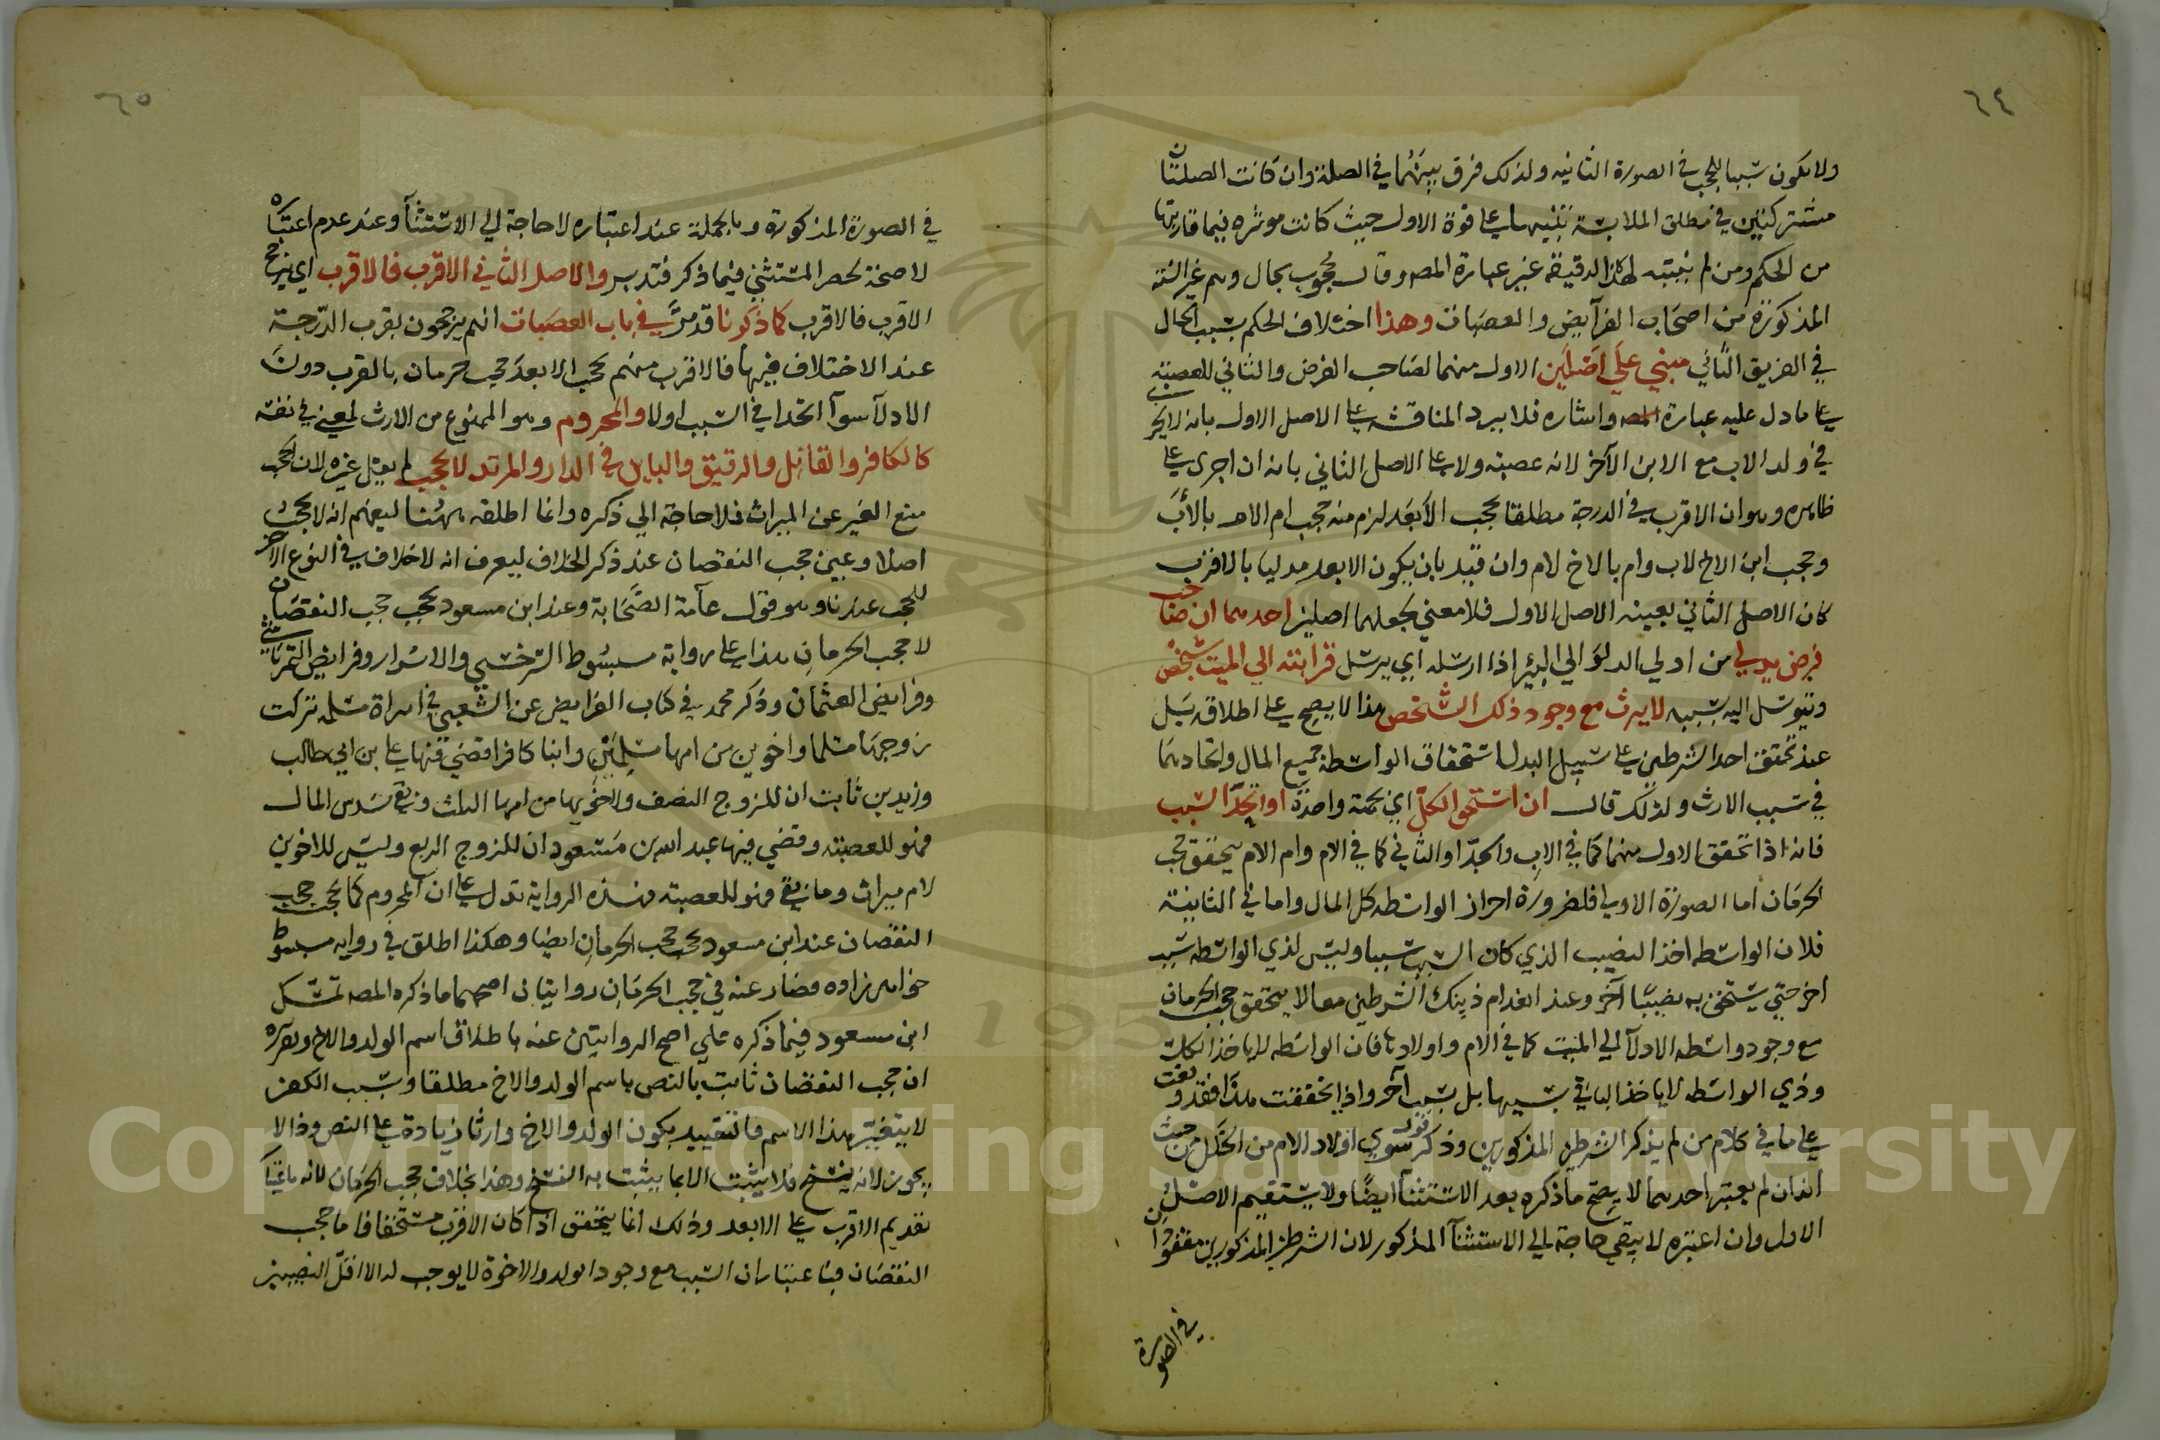 ٦٤
ولا يكون سببا للحجب في الصورة الثانيه ولذلك فرق بينهما في الصلة وان كانت الصلتان
مشتركتين في مطلق الملابسة تنبيها على قوة الاول حيث كانت موثره فيما قارنها
من الحكم ومن لم يتنبه لهذا الدقيقه غير عبارة المص وقال محجوب بحال وهم غير الستة
المذكورة من اصحاب الفرآيض والعصبات وهذا اختلاف الحكم بسبب الحال
في الفريق الثاني مبني على اصلين الاول منهما لصاحب الفرض والثاني للعصبة
على ما دل عليه عبارة المص واشاره فلا يرد المناقشه على الاصل الاول بانه لا يجري
في ولد الاب مع الابن الآخر لانه عصبة ولا على الاصل الثاني بانه ان اجرى على
ظاهره وهو ان الاقرب في الدرجة مطلقا يحجب الأبعد لزم منه حجب ام الام بالأب
وحجب ابن الاخ لاب وام بالاخ لام وان قيد بان يكون الابعد مدليا بالاقرب
كان الاصل الثاني بعينه الاصل الاول فلا معنى لجعلهما اصلين احدهما ان صاحب
فرض يدلي من ادلى الدلو الى البئر اذا ارسله اي يرسل قرابته الى الميت بشخص
ويتوسل اليه بسببه لا يرث مع وجود ذلك الشخص هذا لا يصح على اطلاقه بل
عند تحقق احد الشرطين على سبيل البدل استحقاق الواسطة جميع المال واتحادهما
في سبب الارث ولذلك قال ان استحق الكل اي بجهة واحدة او اتحد السبب
فانه اذا تحقق الاول منهما كما في الاب والجد او الثاني كما في الام وام الام يتحقق حجب
الحرمان اما الصورة الاولى فلضرورة احراز الواسطه كل المال واما في الثانية
فلان الواسطه اخذ النصيب الذي كان السبب سببا وليس لذي الواسطه سبب
اخر حتى يستحق به نصيبا آخر وعند انعدام ذينك الشرطين معا لا يتحقق حجب الحرمان
مع وجود واسطه الادلآ الى الميت كما في الام واولادها فان الواسطه لا ياخذ الكل
وذي الواسطه لا ياخذ الباقي بسببها بل بسبب آخر واذا تحققت هذا فقد وقفت
على ما في كلام من لم يذكر الشرطين المذكورين وذكر قوله سوى اولاد الام من الخلل من حيث
انه ان لم يعتبر احدهما لا يصح ما ذكره بعد الاستثنآ ايضا ولا يستقيم الاصل
الاول وان اعتبره لا يبقى حاجة الى الاستثنآ المذكور لان الشرطين المذكورين مفقودان
في الصورة
٦٥
في الصورة المذكورة وبالجملة عند اعتباره لا حاجة الى الاستثنآ وعند عدم اعتباره
لا صحة لحصر المستثنى فيما ذكر فتدبر والاصل الثاني الاقرب فالاقرب اي يرجح
الاقرب فالاقرب كما ذكرنا قد مر في باب العصبات انهم يرجحون بقرب الدرجة
عند الاختلاف فيها فالاقرب منهم يحجب الابعد حجب حرمان بالقرب دون
الادلآ سوآ اتحدا في السبب او لا والمحروم وهو الممنوع من الارث لمعنى في نفسه
كالكافر والقاتل والرقيق والباين في الدار والمرتد لا يحجب لم يقل غيره لان الحجب
منع الغير عن الميراث فلا حاجة الى ذكره وانما اطلقه ههنا ليفهم انه لا يحجب
اصلا وعين حجب النقصان عند ذكر الخلاف ليعرف انه لا خلاف في النوع الآخر
للحجب عندنا وهو قول عآمة الصحابة وعند ابن مسعود يحجب حجب النقصان
لا حجب الحرمان هذا على رواية مبسوط السرخسي والاسرار وفرايض
وفرايض العثمان وذكر محمد في كتاب الفرايض عن الشعبي في امراة مسلمه تركت
زوجها مسلما واخوين من امها مسلمين وابنا كافرا فقضى فيها علي بن ابي طالب
وزيد بن ثابت ان للزوج النصف ولاخويها من امها الثلث وبقي سدس المال
فهو للعصبة وقضى فيها عبد الله بن مسعود ان للزوج الربع وليس للاخوين
لام ميراث وما بقي فهو للعصبة فهذه الرواية تدل على ان المحروم كما يحجب حجب
النقصان عند ابن مسعود يحجب حجب الحرمان ايضا وهكذا اطلق في رواية مبسوط
خواهر زاده فصار عنه في حجب الحرمان روايتان اصحهما ما ذكره المص تمسك
ابن مسعود فيما ذكره على اصح الروايتين عنه باطلاق اسم الولد والاخ وتقريره
ان حجب النقصان ثابت بالنص باسم الولد والاخ مطلقا وسبب الكفر
لا يتغير هذا الاسم فالتقييد بكون الولد والاخ وارثا زيادة على النص وذا لا
يجوز لانه ينسخ فلا يثبت الا بما يثبت به النسخ وهذا بخلاف حجب الحرمان لانه باعتبار
تقديم الاقرب على الابعد وذلك انما يتحقق اذا كان الاقرب مستحقا فاما حجب
النقصان فباعتبار ان السبب مع وجود الولد والاخوة لا يوجب له الا اقل النصيبين
Copyright © King Saud University
195